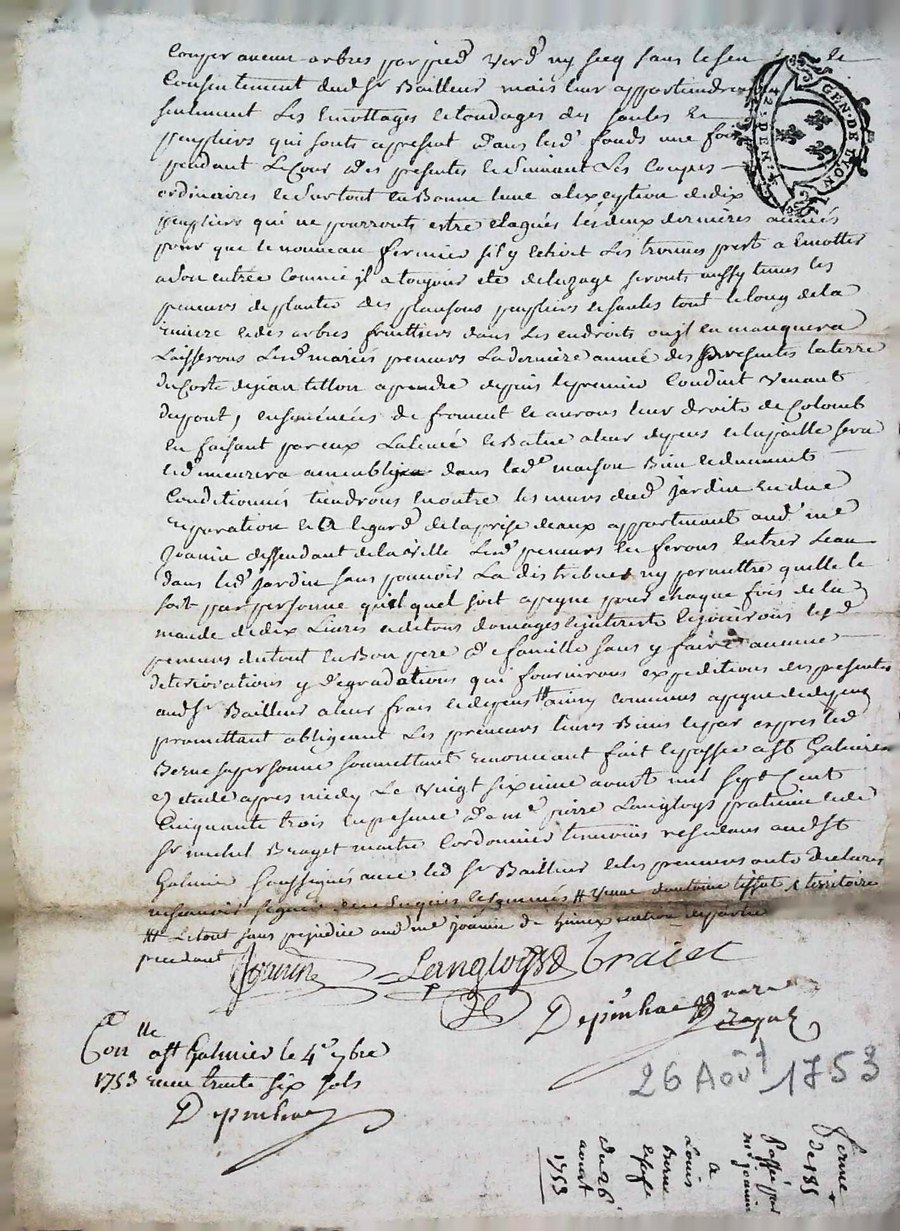 Couper aucun arbres par pied verd ny secq sans le
Consentement dud sr Bailleur mais leur appartiendra
seulement les Emottages et tondages des saules et
peupliers qui sonts apresent dans led fonds une fois
pendant le Cour des presentes les Coupes
ordinaires et surtout en Bonne lune a lexeption de dix
peupliers qui ne pourronts estre elagués les deux dernieres années
pour que le nouveau fermier sil y echoit les trouves prest a Emotter
a son entrée comme il a toujour eté de luzage seronts aussy tenus les
preneurs de planter des plansons peupliers et saules tout le long de la
riviere et des arbres fruittiers dans les endroits ou il en manquera
Laisserons lesd mariés preneurs la derniere année des presentes la terre
du Coste de jean tillon a prendre depuis le premier Conduit venant
du pont, ensemencées de froment et aurons leur droits de Colomb
En faisant par eux la et Batue a leur depens et la paille sera
dans lad maison Bien et duement
Conditionnés tiendrons en outre les murs dud jardin en due
reparation et a legard de la prise deaux appartenant aud me
Joanin dessendant de la ville lesd preneurs en ferons entrer leau
dans led jardin sans pouvoir la distribuer ny permettre quelle le
soit par personne quil quel soit a peyne pour chaque fois de la
mande de dix Livres et de tous domages et jnterests et jouirons lesd
preneurs du tout en Bon pere de famille sans y faire aucune
deteriorations ny degradations qui fournirons expeditions des presentes
aud sr Bailleur a leur frais et depens # ainsy convenus a peyne de depens
promettant obligeant les preneurs leurs Biens et par expres led
Berne sa personne soumettant renonceant fait et passé a st Galmier
etude apres midy le vingt sixieme aoust mil sept Cent
Cinquante trois en presence de me pierre Langloys praticien et de
sr michel Brayet maitre Cordonnier temoins residans aud st
Galmier soussignés avec led sr Bailleur et les preneurs ont declarés
ne scavoir signer de ce enquis et sommés # veuve dantoine tissot & territoire
## Le tout sans prejudice aud me joanin de
precedant
Joanin Langloys Braiet
Depinhac
Con lle a st Galmier le 4e 7bre
1753 recu trente six sols
Depinhac
26 Août 1753
ferme
de 185
Passée par
me joanin
a
Louis
berne
du 26
aoust
1753